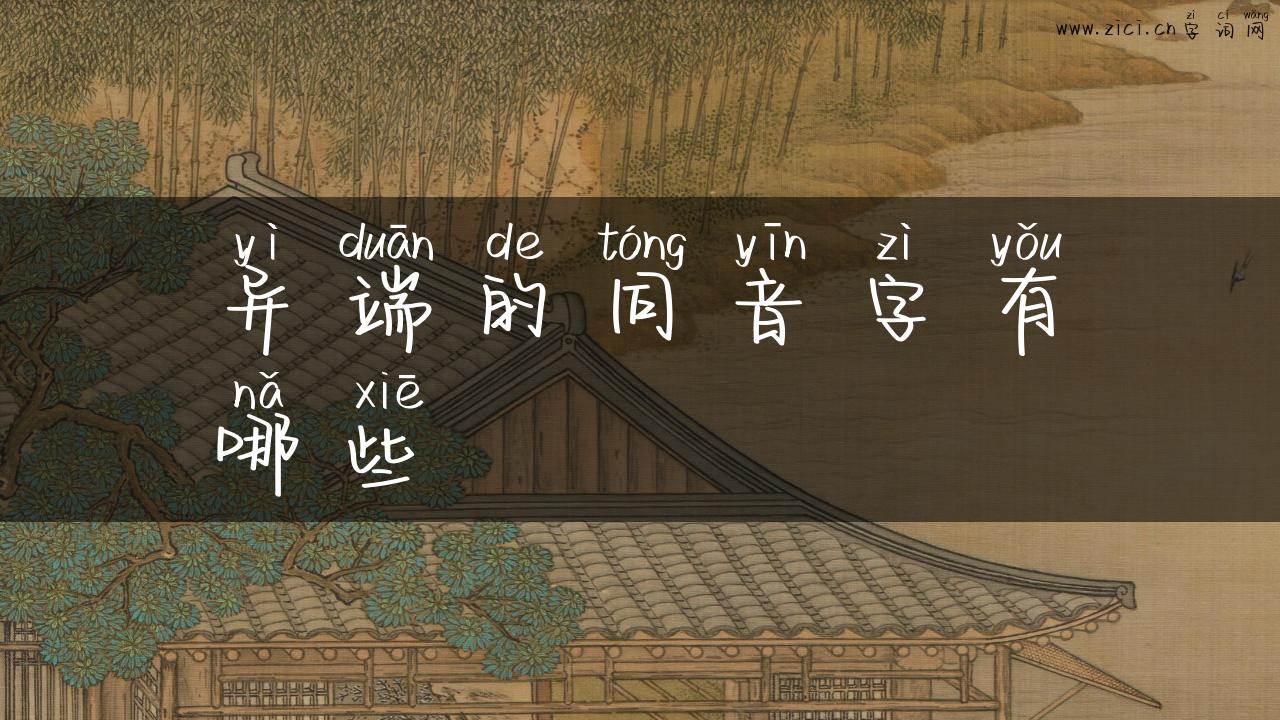 zì cí wǎng
www.zici.cn字词网
yì duān de tóng yīn zì yǒu
异端的同音字有
nǎ xiē
哪些